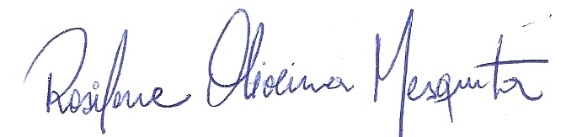 Rosilene Oliveira Mesquita